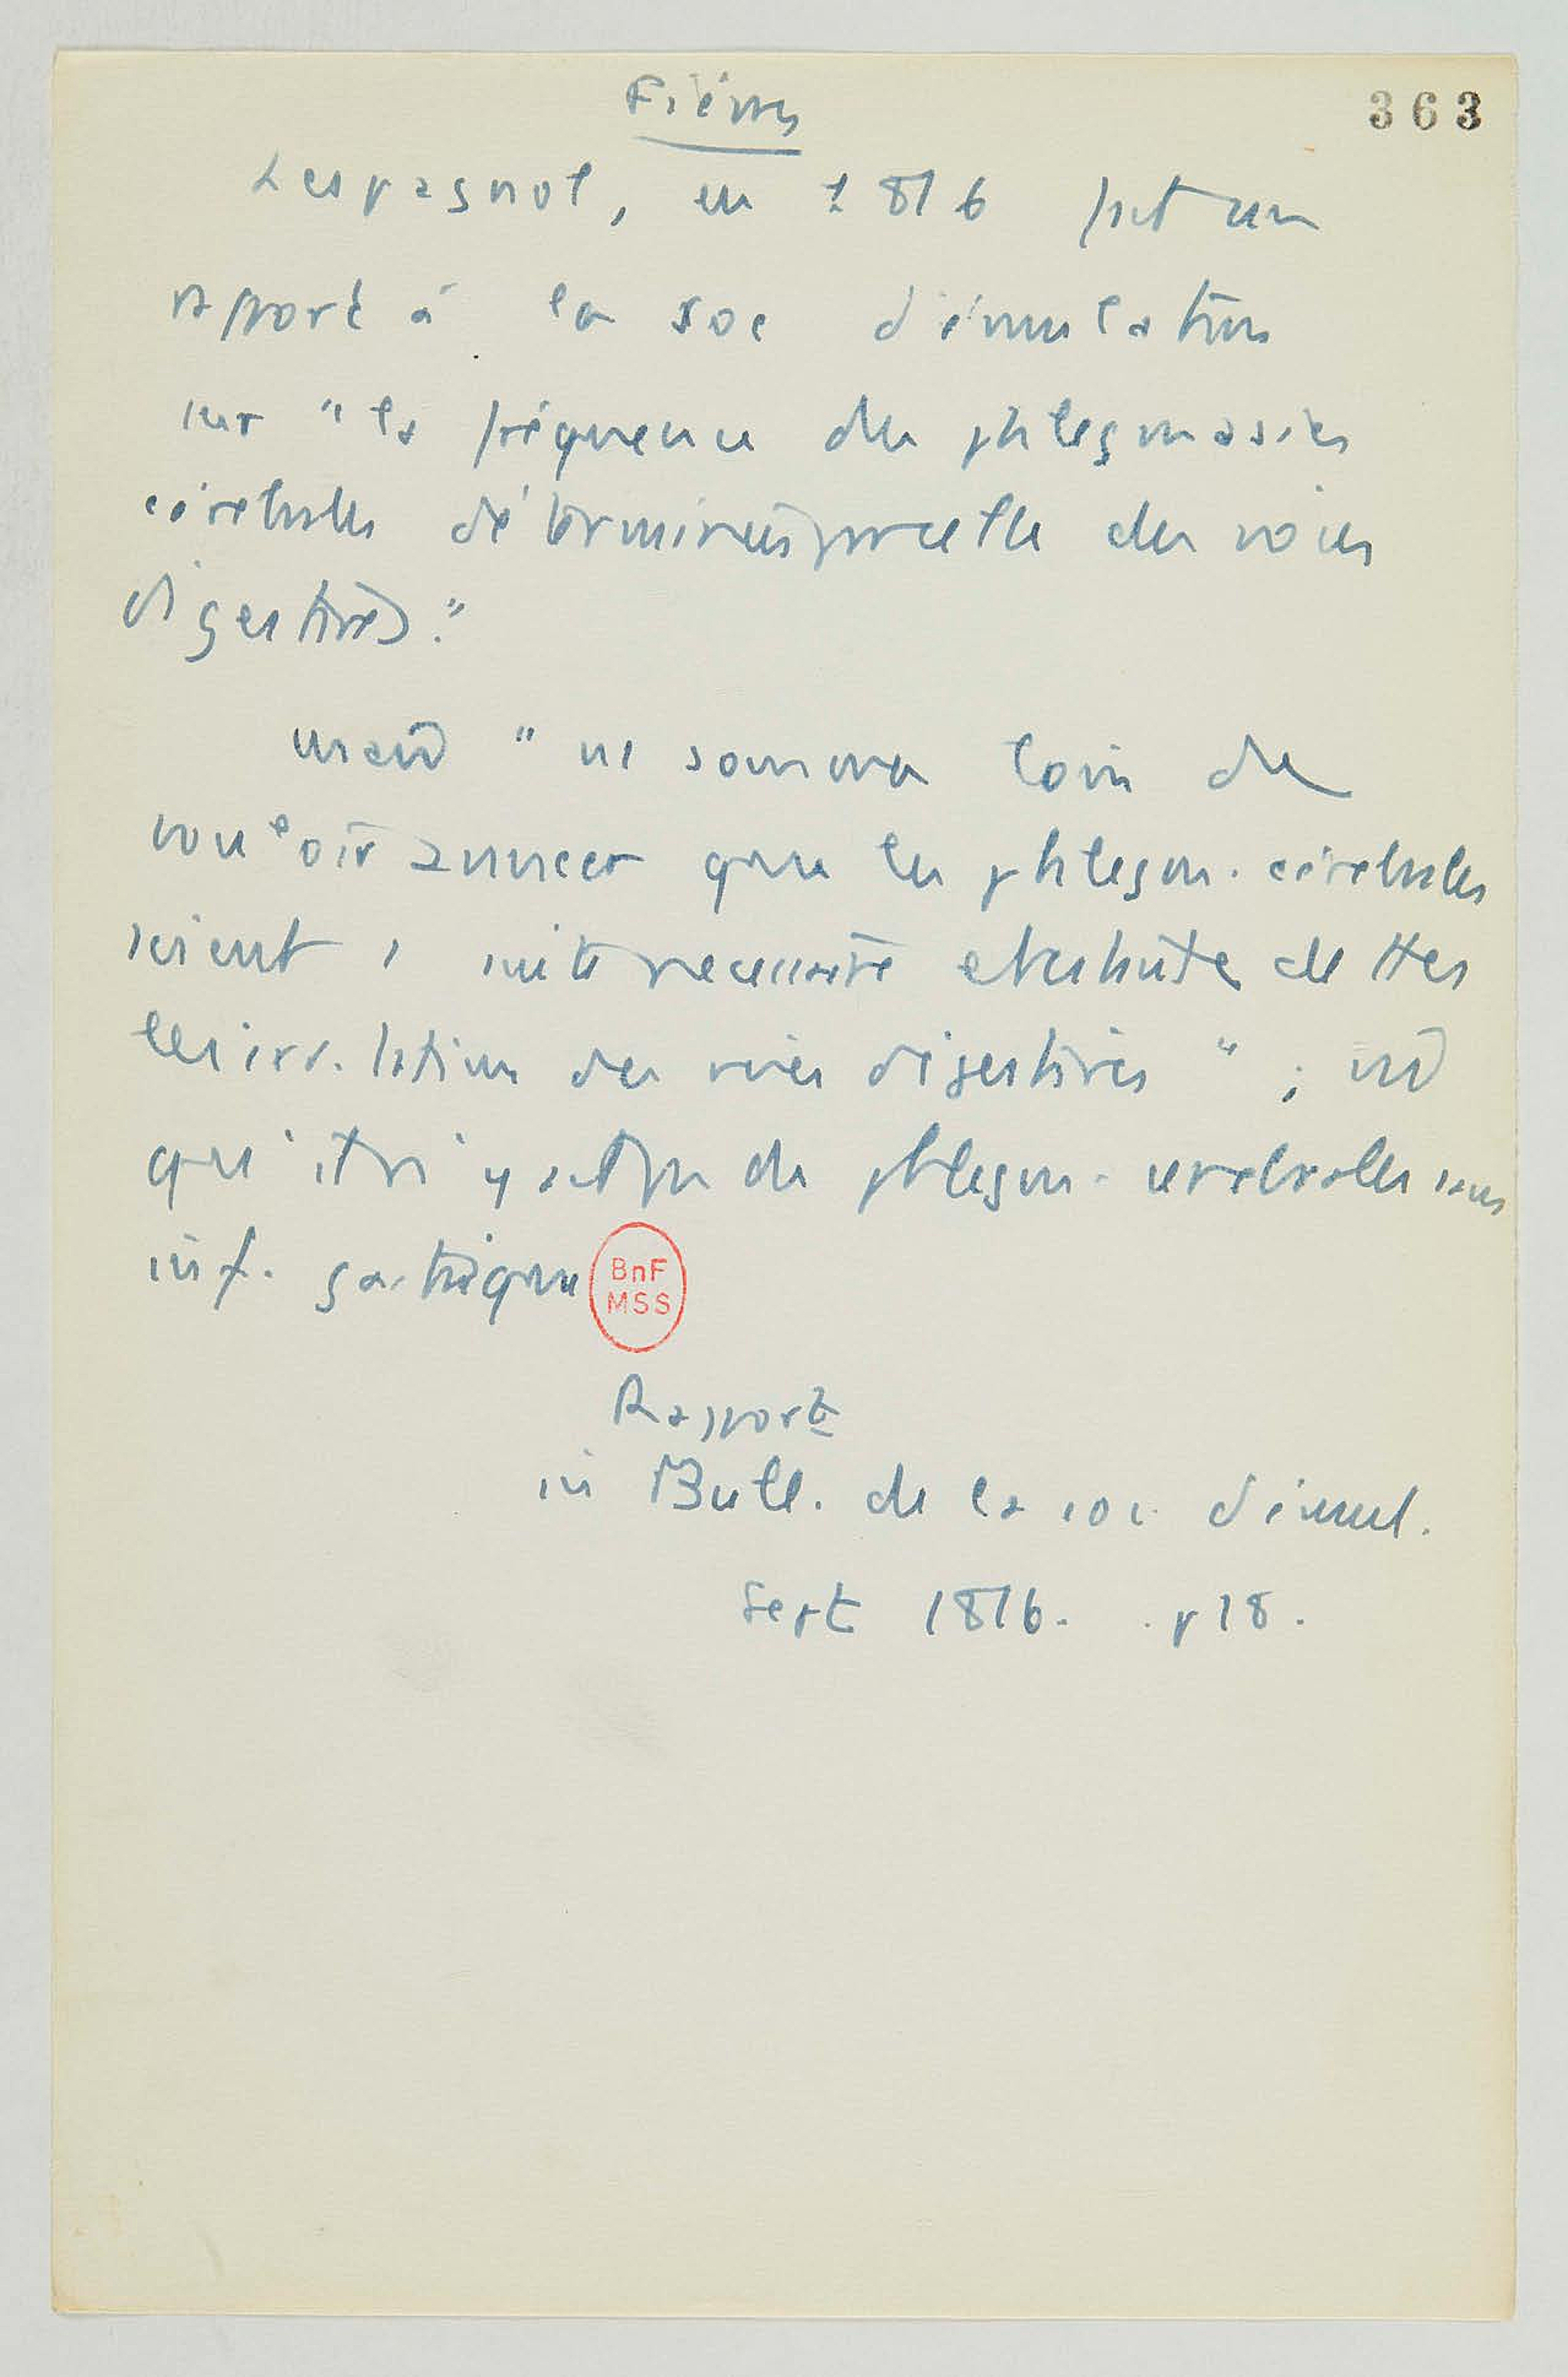 Fièvres
363
Lespagnol, en 1816 fait un
rapport à la soc d'émulation
sur "la fréquence des phlegmasies
cérébrales déterminées par celle des voies
digestives."
"ns sommes loin de
vouloir annoncer que les phlegm. cérébrales
soient 1 suite nécessaire et absolue de ttes
les irritations des voies digestives" ;
qu'il n'y ait pas de phlegm. cérébrales sans
inf. gastrique
BnF
MSS
Rapport
in Bull. de la soc d'émul.
Sept 1816. p 18.